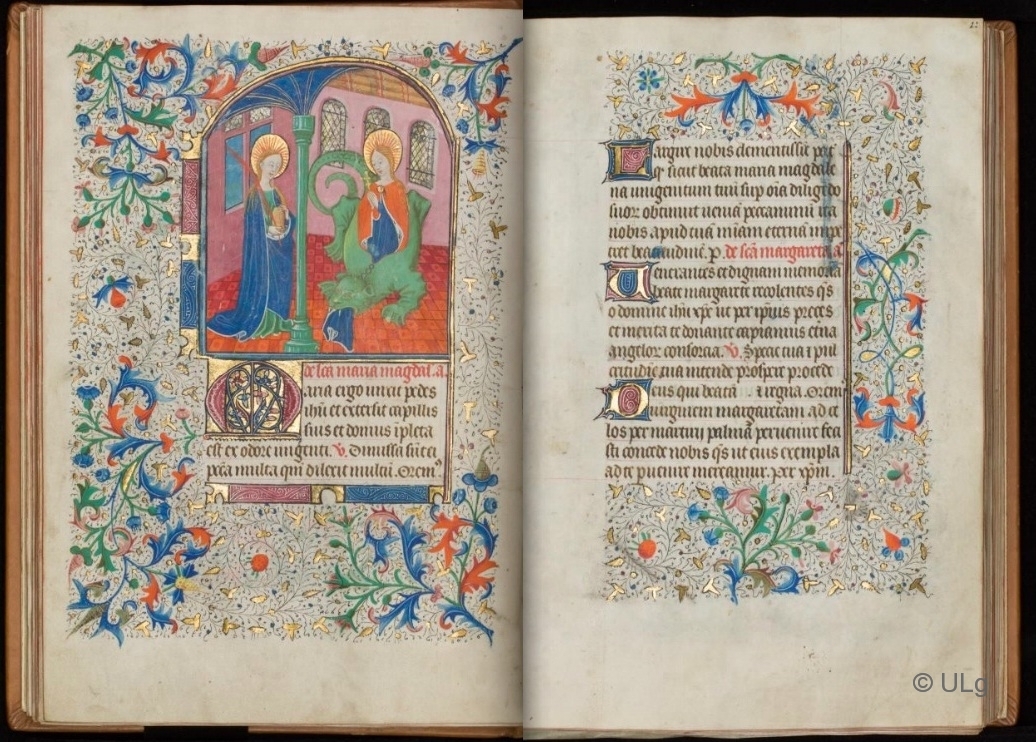 de scā maria magdal. a.
aria ergo unxit pedes
ihū et extersit capillis
suis et domus īpleta
est ex odore ungenti. V. Dimissa sūt ei
pcā̄ multa qm̄ dilexit multū. Orem9
Largire nobis clementissīe pat̄
q̄ sicut beata maria magdale
na unigenitum tuū sup oīa diligēdo
suor obtinuit veniā peccaminū ita
nobis apud tuā mīam eternā impe
tret beatitudinē. p. de scā margareta. a.
Venerantes et dignam memoria
beate margarete recolentes q̄s
o domine ihū xp̄e ut per ip̄ius preces
et merita te donante capiamus etna
angelor consorcia. V. Specie tua ī pul
critudīe tua intende prospere procede
Deus qui beatā ī regna. Orem9
uirginem margaretam ad ce
los per martirii palmā pervenire feci
sti concede nobis q̄s ut eius exempla
ad te p̄uenire mereamur. Per xp̄m.
© ULg